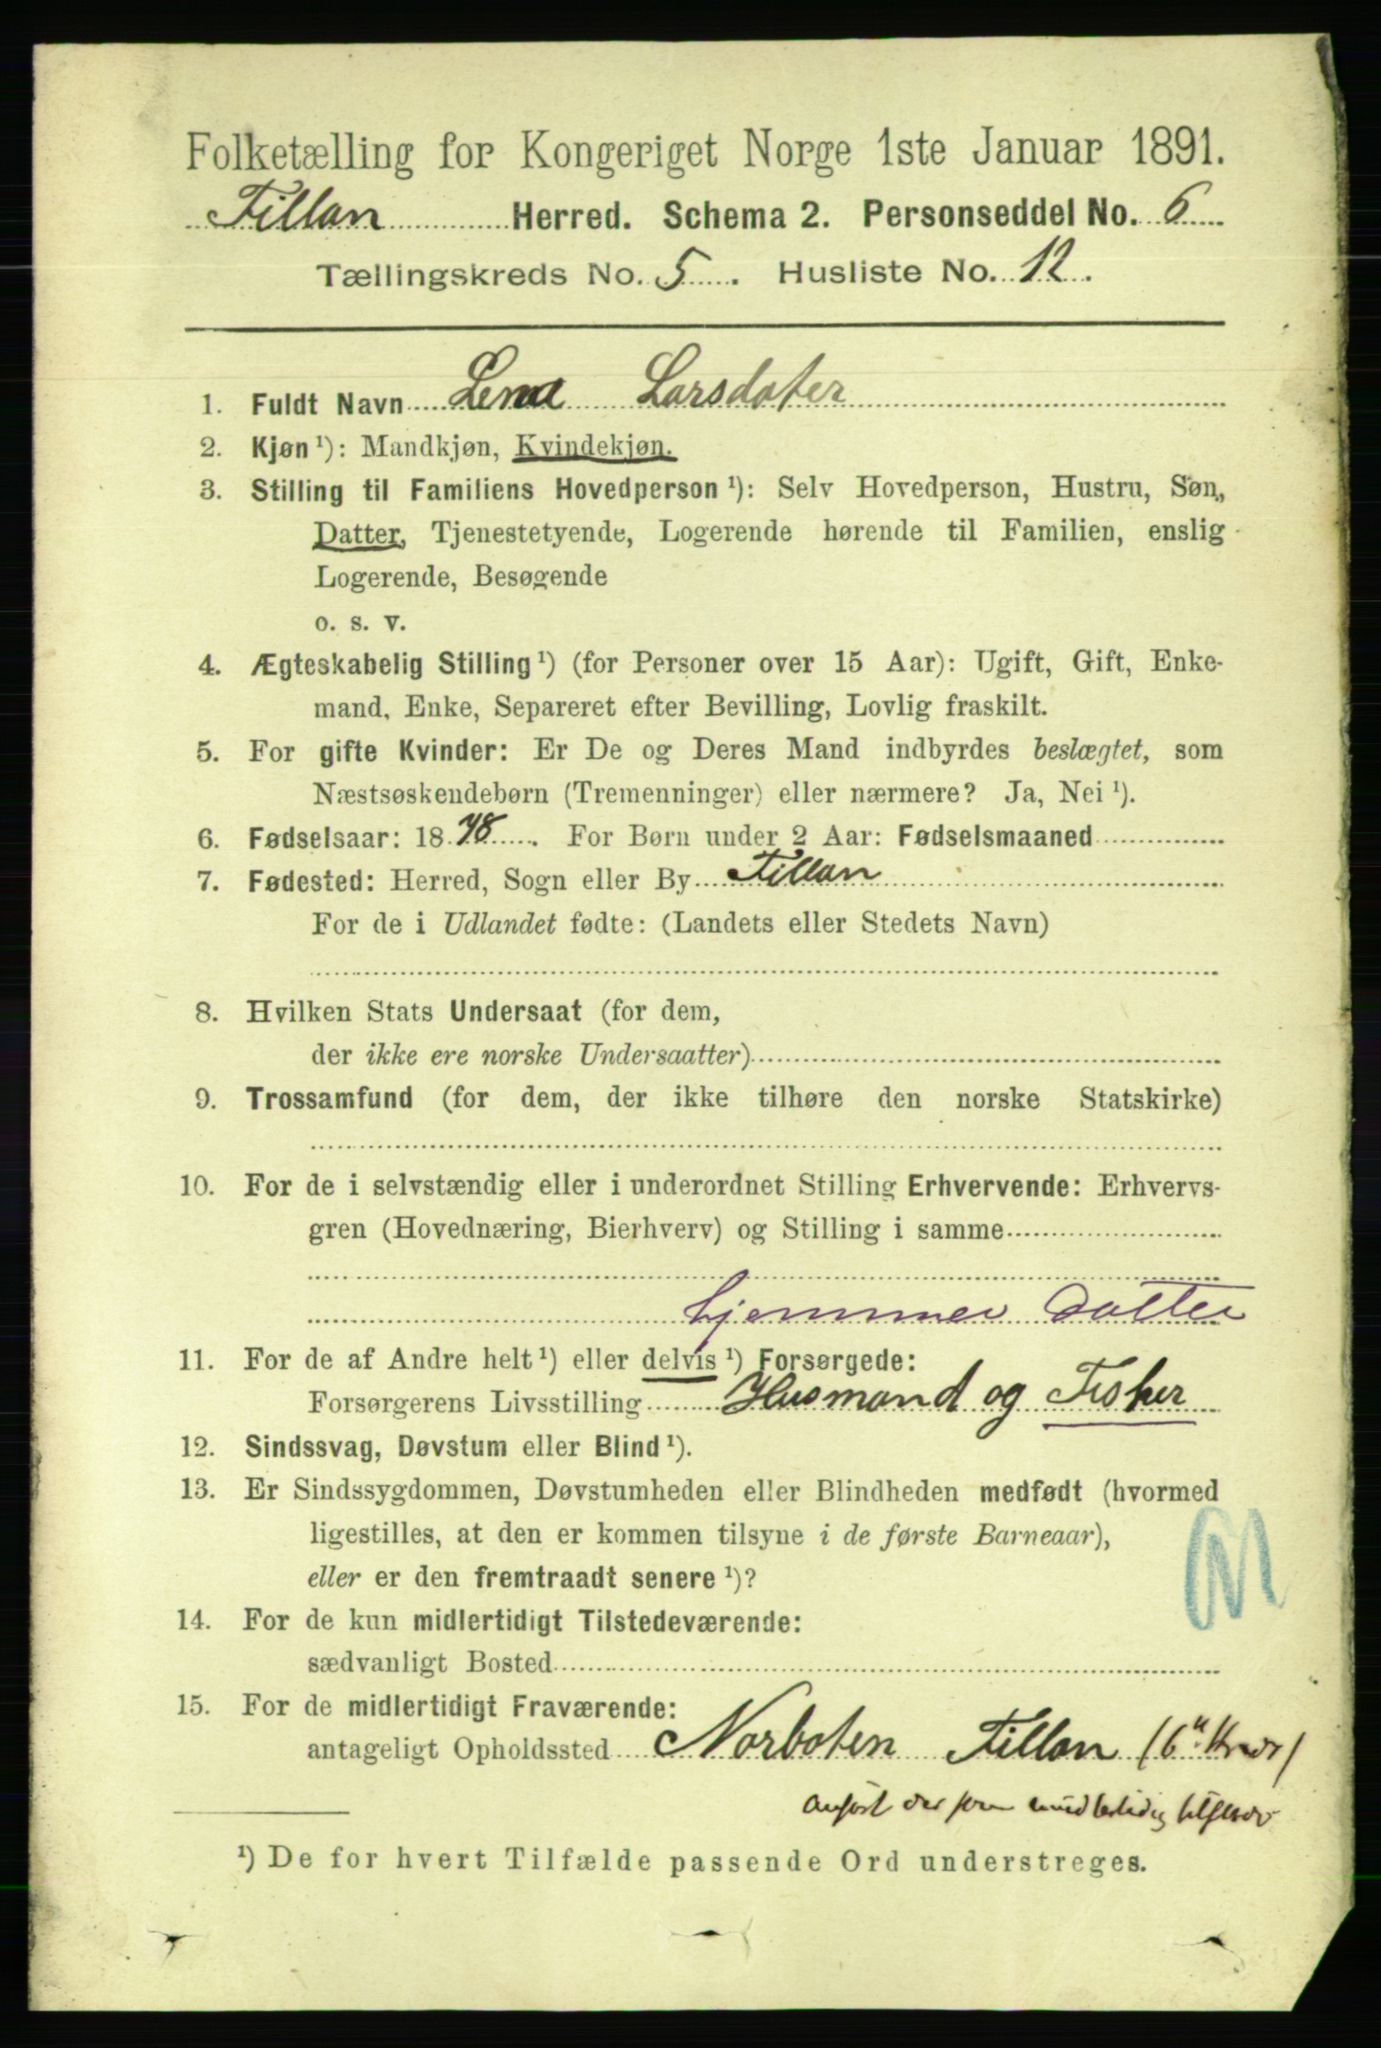 Folketælling for Kongeriget Norge 1ste Januar 1891.
Fillan Herred. Schema 2. Personseddel No. 6
Tællingskreds No. 5. Husliste No. 12.
1. Fuldt Navn Lena Larsdater
2. Kjøn ¹): Mandkjøn, Kvindekjøn.
3. Stilling til Familiens Hovedperson ¹): Selv Hovedperson, Hustru, Søn,
Datter, Tjenestetyende, Logerende hørende til Familien, enslig
Logerende, Besøgende
o. s. v.
4. Ægteskabelig Stilling ¹) (for Personer over 15 Aar): Ugift, Gift, Enke-
mand, Enke, Separeret efter Bevilling, Lovlig fraskilt.
5. For gifte Kvinder: Er De og Deres Mand indbyrdes beslægtet, som
Næstsøskendebørn (Tremenninger) eller nærmere? Ja, Nei ¹).
6. Fødselsaar: 1878. For Børn under 2 Aar: Fødselsmaaned
7. Fødested: Herred, Sogn eller By Fillan
For de i Udlandet fødte: (Landets eller Stedets Navn)
8. Hvilken Stats Undersaat (for dem,
der ikke ere norske Undersaatter)
9. Trossamfund (for dem, der ikke tilhøre den norske Statskirke)
10. For de i selvstændig eller i underordnet Stilling Erhvervende: Erhvervs-
gren (Hovednæring, Bierhverv) og Stilling i samme
hjemmev Datter
11. For de af Andre helt ¹) eller delvis ¹) Forsørgede:
Forsørgerens Livsstilling Husmand og Fisker
12. Sindssvag, Døvstum eller Blind ¹).
13. Er Sindssygdommen, Døvstumheden eller Blindheden medfødt (hvormed
ligestilles, at den er kommen tilsyne i de første Barneaar),
eller er den fremtraadt senere ¹)?
14. For de kun midlertidigt Tilstedeværende:
sædvanligt Bosted
15. For de midlertidigt Fraværende:
antageligt Opholdssted Norboten Fillan (6
anført der som midlertidig
¹) De for hvert Tilfælde passende Ord understreges.